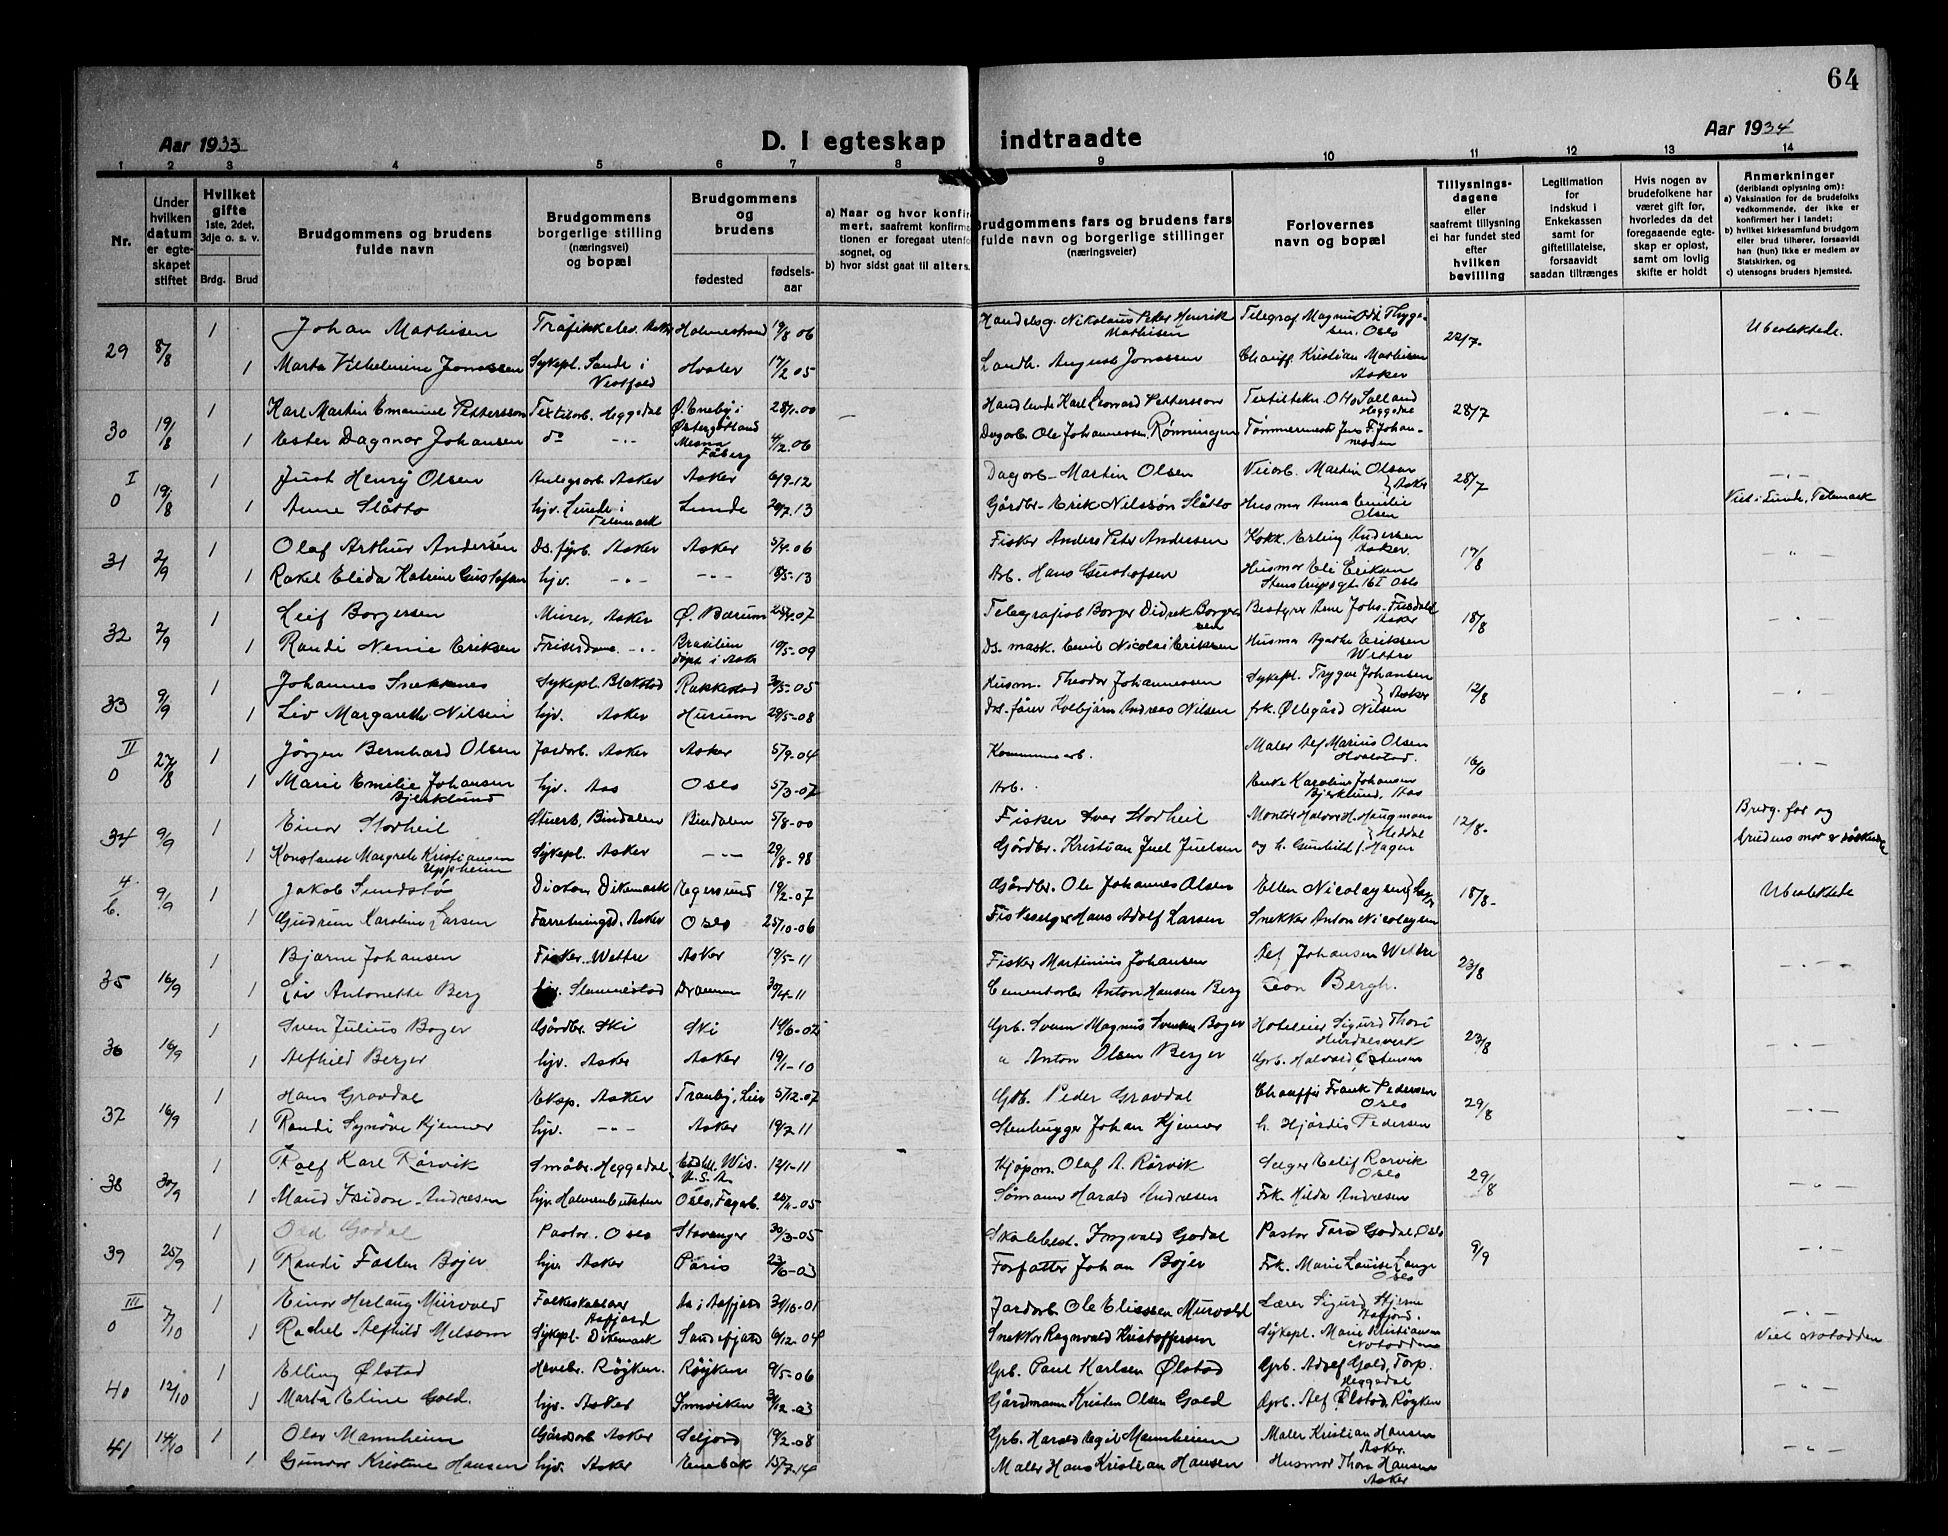 64
Aar 1933
D. I egteskap indtraadte
Aar 1934
1 2 3 4 5 6 7 8 9 10 11 12 13 14
Nr.
Under hvilken datum er egteskapet stiftet
Hvilket gifte
1ste, 2det, 3dje o. s. v.
Brdg. Brud
Brudgommens og brudens fulde navn
Brudgommens borgerlige stilling (næringsvei) og bopæl
Brudgommens og brudens
fødested
fødselsaar
a) Naar og hvor konfirmert, saafremt konfirmationen er foregaat utenfor sognet, og
b) hvor sidst gaat til alters.
Brudgommens fars og brudens fars fulde navn og borgerlige stillinger (næringsveier)
Forlovernes navn og bopæl
Tillysningsdagene eller saafremt tillysning ei har fundet sted efter hvilken bevilling
Legitimation for indskud i Enkekassen samt for giftetillatelse, forsaavidt saadan tiltrænges
Hvis nogen av brudefolkene har været gift før, hvorledes da det foregaaende egteskap er opløst, samt om lovlig skifte er holdt
Anmerkninger
(deriblandt oplysning om):
a) Vaksination for de brudefolks vedkommende, der ikke er konfirmert her i landet;
b) hvilket kirkesamfund brudgom eller brud tilhører, forsaavidt han (hun) ikke er medlem av Statskirken, og
c) utensogns bruders hjemsted.
29 8/8 1 Johan Mathisen Trafikkelev. Asker Holmestrand 19/8 06 Handelsg. Nikolaus Peter Henrik Mathisen Telegraf. Magnus Thygesen. Oslo 22/7- Ubeslektede.
1 Marta Vilhelmine Jonassen Sykepl. Sande i Vestfold Hvaler 17/2 05 Landh. August Jonassen Chauff. Kristian Mathisen Asker
30 19/8 1 Karl Martin Emanuel Pettersson Textilarb. Heggedal Ø. Eneby i Østergötland 28/1-00 Handlende Karl Leonard Pettersson Textiltekn. Otto Salland Heggedal 28/7 -"-
1 Ester Dagmar Johansen do -"- Mesna Fåberg 4/12.06 Dagarb. Ole Johannessen Rønningen Tømmermester Jens F. Johannessen
I 0 19/8 1 Just Henry Olsen Anlegsarb. Asker Asker 6/9-12 Dagarb- Martin Olsen Veiarb. Martin Olsen Asker 28/7 -"-
1 Anne Slåtto hjv. Lunde i Telemark Lunde 20/7.13 Gårdbr- Erik Nilssøn Slåtto Husmor Anna Emilie Olsen Viet i Lunde, Telemark
31 2/9 1 Olaf Arthur Andersen Ds. fyrb. Asker Asker 5/4-06 Fisker Anders Peter Andersen Kokk. Erling Andersen Asker. 17/8 -"-
1 Rakel Elida Katrine Gustafsen hjv. -"- -"- 18/5-13 Arb. Hans Gustafsen Husmor Eli Eriksen Stenstrupsgt. 16 I Oslo
32 2/9 1 Leif Borgersen Murer, Asker Ø. Bærum 25/4-07 Telegrafisb Borger Didrik Borgersen Bestyrer Arne Johs. Fusdahl Asker 18/8 -"-
1 Randi Nenie Eriksen Friserdame -"- Brasilien døpt i Asker 10/5-09 Ds. mask. Emil Nicolai Eriksen Husmor Agathe Eriksen Wettre
33 9/9 1 Johannes Snekknes Sykepl. Blakstad Rakkestad 30/5-05 Husm. Theodor Johannessen Sykepl. Trygve Johansen Asker 12/8 -"-
1 Liv Margarethe Nilsen hjv. Asker Hurum 29/5-08 Ds. fører Kolbjørn Andreas Nilsen frk. Øllegård Nilsen
II 0 27/8 1 Jörgen Bernhard Olsen Jordarb. Asker Asker 5/9-04 Kommunearb. Maler Alf Marius Olsen Hvalstad. 16/6 -"-
1 Marie Emelie Johansen Bjerklund hjv. Aas Oslo 5/3-07 Arb. Enke Karoline Johansen Bjerklund, Aas
34 9/9 1 Einar Storheil Stuerb. Bindalen Bindalen 5/8-00 Fisker Iver Storheil Montør Halvor H. Haugmann Heddal 12/8- Brudg. far og
1 Konstanse Margrete Kristiansen Uppheim Sykepl. Asker -"- 29/8-98 Gårdbr. Kristian Juel Juelsen og h. Gunhild f. Hagen brudens mor er søskende
4 b. 9/9 1 Jakob Sundstø Diakon Dikemark Egersund 19/2-07 Gårdbr. Ole Johannes Olsen Ellen Nicolaysen 18/8- Ubeslektede
1 Gudrun Karoline Larsen Forretningsd. Asker Oslo 25/10-06 Fiskeselger Hans Adolf Larsen Snekker Anton Nicolaysen
35 16/9 1 Bjarne Johansen Fisker. Wettre Asker 19/5-11 Fisker Martinius Johansen Alf Johansen Wettre 23/8 -"-
1 Liv Antonette Berg hjv. Slemmestad Drammen 30/4-11 Cementarb. Anton Hansen Berg Leon Bergh.
36 16/9 1 Sven Julius Boger Gårdbr. Ski Ski 14/6-02 Grb. Svenn Magnus Svensen Boger Hoteleier Sigurd Thori Hurdalsverk 23/8 -"-
1 Alfhild Berger hjv. Asker Asker 19/1-10 " Anton Olsen Berger Grb. Halvard Østensen
37 16/9 1 Hans Gravdal Eksp. Asker Tranby, Lier 5/12-07 Grb. Peder Gravdal Chauffør Frank Pedersen Oslo 29/8 -"-
1 Randi Synøve Kjenner hjv. -"- Asker 19/7 11 Stenhugger Johan Kjenner h. Hjørdis Pedersen
38 30/9 1 Ralf Karl Rörvik Småbr. Heggedal Wis. U.S.A. 12/1-11 Kjøpm. Olaf A. Rörvik Selger Leif Rörvik Oslo 29/8 -"-
1 Maud Isidore Andresen hjv. Holmenbukten Oslo, Fagerb. 25/11-05 Sømann Harald Andresen Frk. Hilda Andresen
39 25/9 1 Odd Godal Pastor. Oslo Stavanger 30/3-05 Skolebest. Ingvald Godal Pastor Tord Godal, Oslo 9/9 -"-
1 Randi Fasten Bojer hjv. Asker Paris 23/6-03 Forfatter Johan Bojer Frk. Marie Louise Lange Oslo
III 0 7/10 1 Einar Herlaug Murvold Folkeskolelær Aafjord Aa i Aafjord 31/10-01 Jordarb. Ole Eliassen Murvold Lærer Sigurd Hjerme Aafjord. -"-
1 Rachel Alfhild Melsom Sykepl. Dikemark Sandefjord 6/12-04 Snekker Ragnvald Kristoffersen Sykepl. Marie Kristiansen Notodden Viet Notodden
40 12/10 1 Elling Ølstad Havebr. Røyken. Røyken 9/5-06 Grb. Paul Karlsen Ølstad Grb. Adolf Gold, Torp. Heggedal -"-
1 Marta Eline Gold. hjv. Asker Innviken 31/12-03 Gårdmann Kristen Olsen Gold Grb. Alf Ølstad, Røyken
41 14/10 1 Olav Mannheim Gårdsarb. Asker Seljord 19/2-08 Grb. Harald Egil Mannheim Maler Kristian Hansen Asker. -"-
1 Gunvor Kristine Hansen hjv. Asker Enebak 15/7-14 Maler Hans Kristian Hansen Husmor Thora Hansen Asker